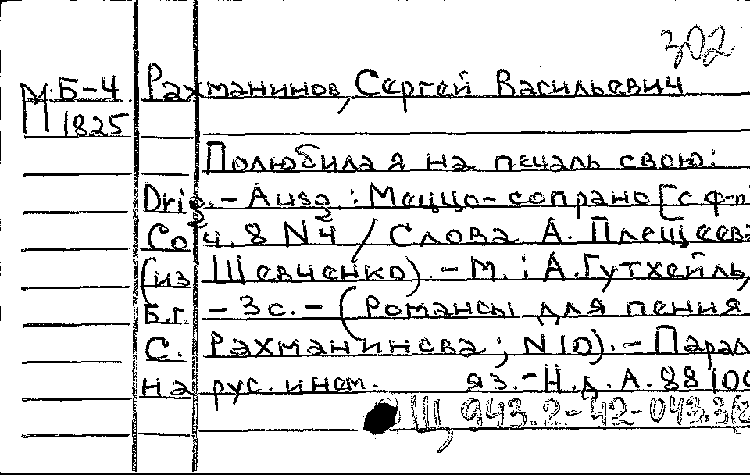 302
М Б-4 Рахманинов, Сергей Васильевич
1825
Полюбила я на печаль свою:
Orig.-Ausg.: Меццо-сопрано [с ф-п
Соч. 8 N4 / Слова А. Плещеева
(из Шевченко). - М.: А.Гутхейль,
Б.г. - 3с. - (Романсы для пения
С. Рахманинова; N10). - Парал
на рус. и нем. яз. - Н.д. А.88100
Ш, 943.2-42-043.3(2